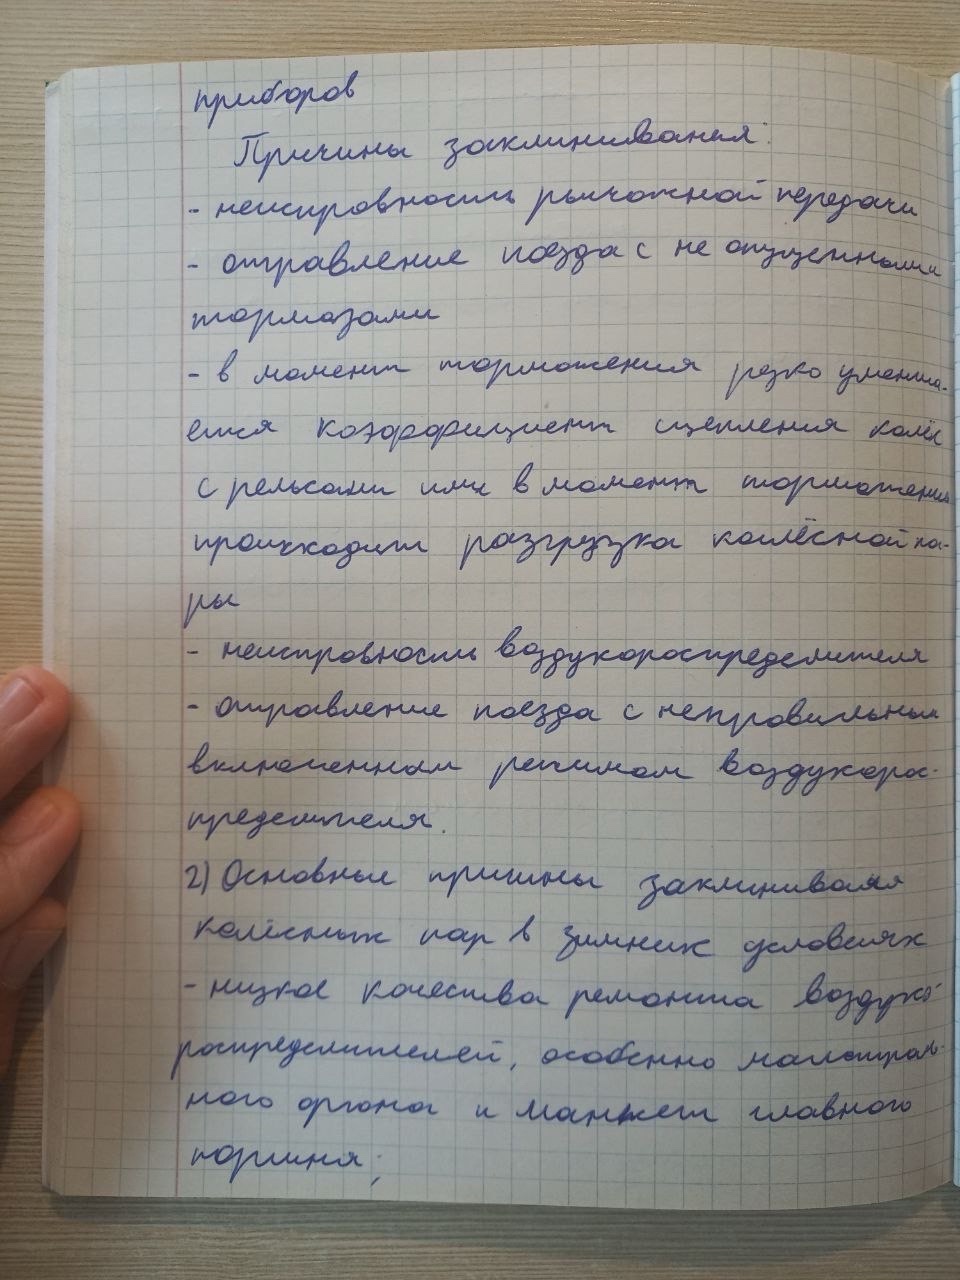 приборов
Причины заклинивания:
- неисправность рычажной передачи
- отправление поезда с не отпущенными
тормозами
- в момент торможения резко уменьша-
ется коэффициент сцепления колёс
с рельсами или в момент торможения
происходит разгрузка колёсной па-
ры
- неисправность воздухораспределителя
- отправление поезда с неправильным
включенным режимом воздухорас-
пределителя.
2) Основные причины заклинивая
колёсных пар в зимних условиях
- низкое качества ремонта воздухо-
распределителей, особенно магистраль-
ного органа и манжет главного
поршня;